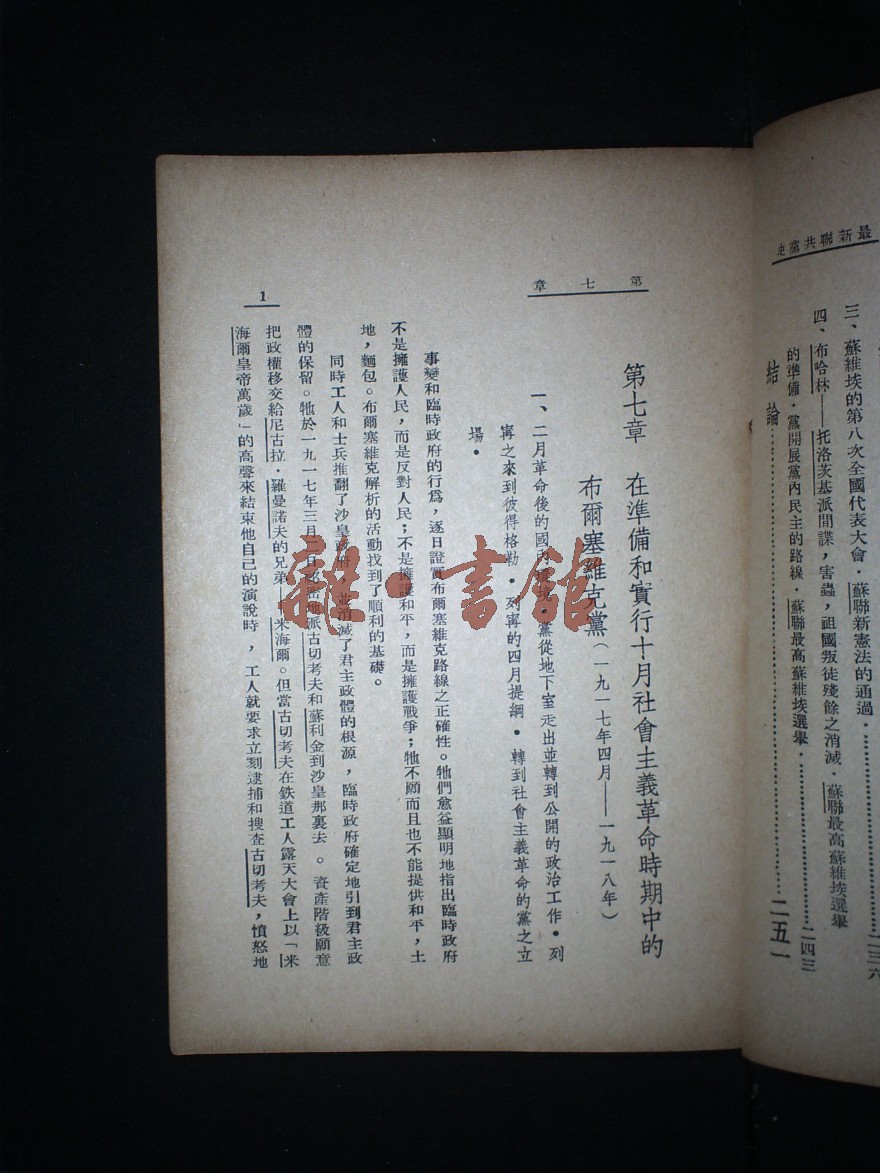 最新聯共黨史
三、蘇維埃的第八次全國代表大會．蘇聯新憲法的通過．……………二三六
四、布哈林——托洛茨基派間諜，害蟲，祖國叛徒殘餘之消滅．蘇聯最高蘇維埃選舉
的準備．黨開展黨內民主的路線．蘇聯最高蘇維埃選舉．……………二四三
結論……………二五一
第七章
第七章　在準備和實行十月社會主義革命時期中的
布爾塞維克黨（一九一七年四月——一九一八年）
一、二月革命後的國　　黨從地下室走出並轉到公開的政治工作．列
寗之來到彼得格勒．列寗的四月提綱．轉到社會主義革命的黨之立
場．
事變和臨時政府的行爲，逐日證實布爾塞維克路線之正確性。牠們愈益顯明地指出臨時政府
不是擁護人民，而是反對人民；不是擁護和平，而是擁護戰爭；牠不願而且也不能提供和平，土
地，麵包。布爾塞維克解析的活動找到了順利的基礎。
同時工人和士兵推翻了沙皇政府，並消滅了君主政體的根源，臨時政府確定地引到君主政
體的保留。牠於一九一七年三月二日秘密地派古切考夫和蘇利金到沙皇那裏去。資產階級願意
把政權移交給尼古拉．羅曼諾夫的兄弟—米海爾。但當古切考夫在鉄道工人露天大會上以「米
海爾皇帝萬歲」的高聲來結束他自己的演說時，工人就要求立刻逮捕和搜查古切考夫，憤怒地
1
雜·書館